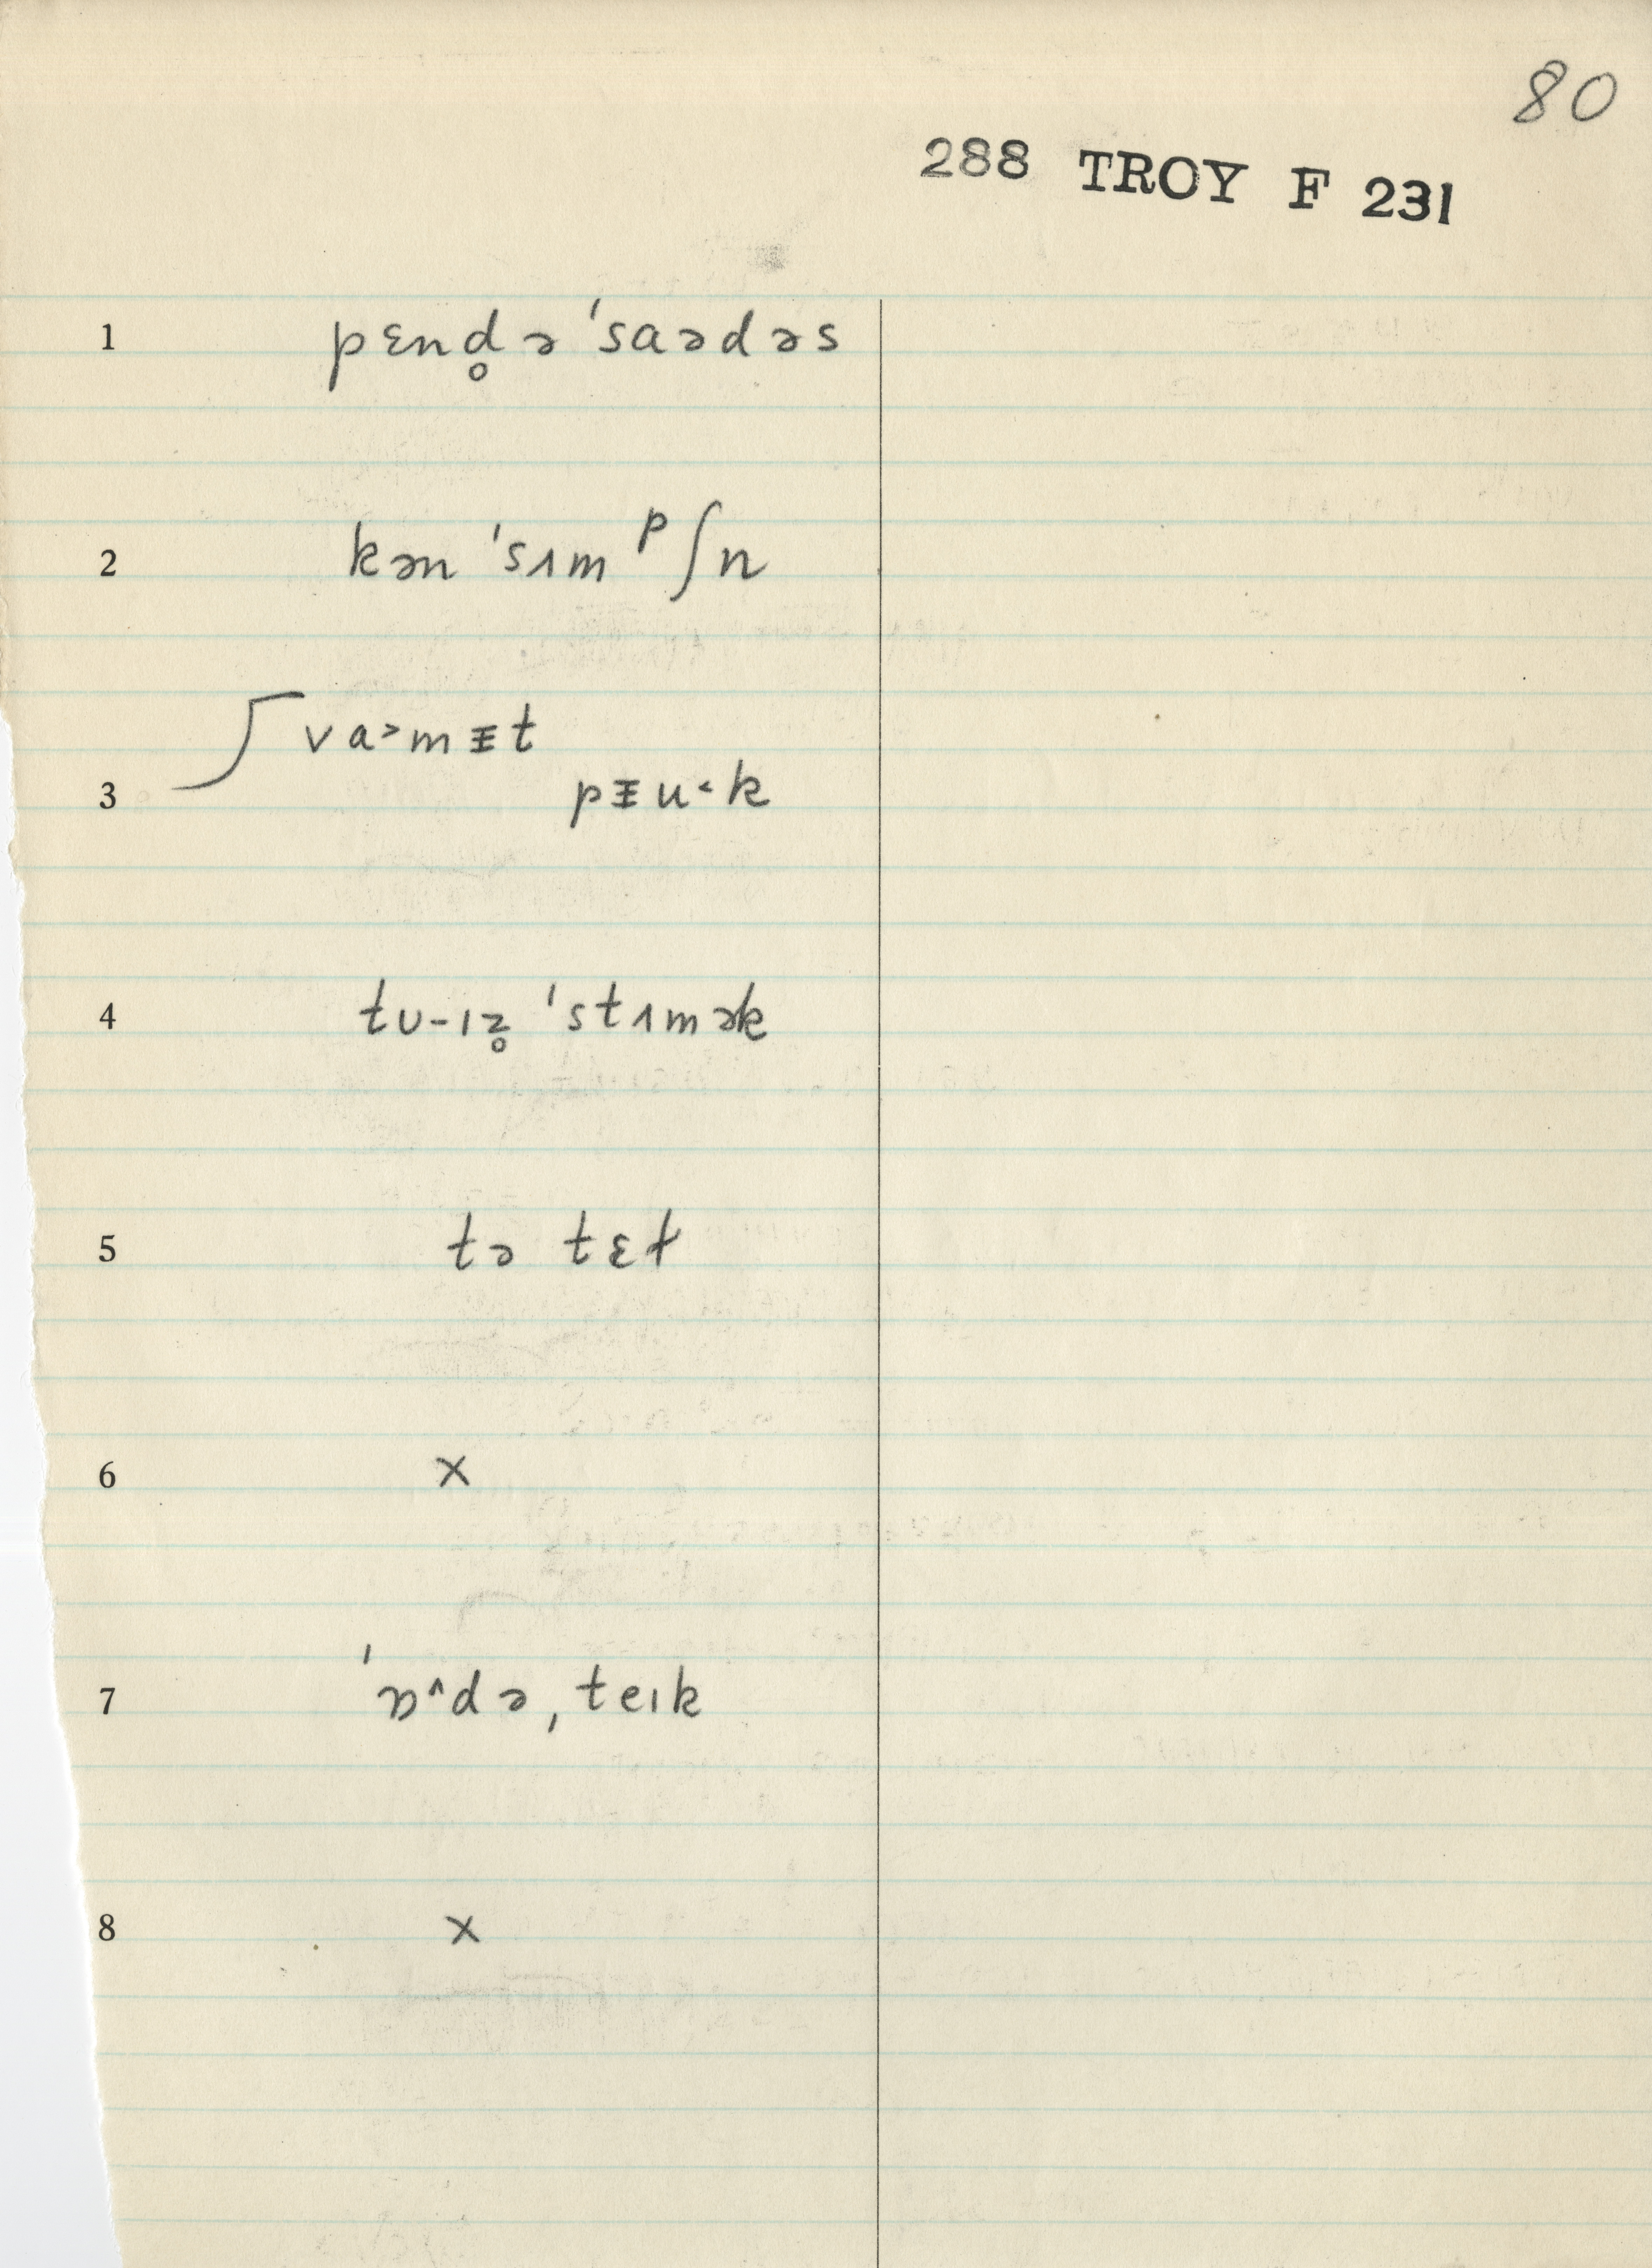 80
288 TROY F 231
1 pɛnd̥ə ˈsaədəs
2 kən ˈsɪmᵖʃn
3 va˃mᵻt
pᵻu˂k
4 tʊ-ɪz̥ ˈstɪmək
5 tə tɛɫ
6 x
7 ˈɒ^də ˌteɪk
8 x